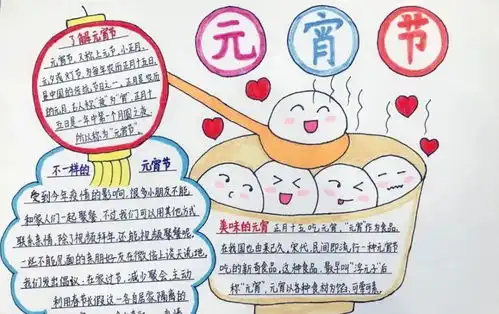 元宵节
了解元宵节
元宵节，又称上元节、小正月、
元夕或灯节，为每年农历正月十五日，
是中国的传统节日之一。正月是农历
的元月，古人称"夜"为"宵"，正月十
五日是一年中第一个月圆之夜，
所以称为"元宵节"。
不一样的 元宵节
受到今年疫情的影响，很多小朋友不能
和家人们一起聚餐，不过我们可以用其他方式
联系亲情，除了视频拜年，还能视频聚餐呢。
一些不能见面的亲朋好友在微信上谈天说地，
我们发出倡议，在家过节，减少聚会，主动
利用春节长假这一各自居家隔离的
美味的元宵 正月十五吃元宵，"元宵"作为食品，
在我国也由来已久。宋代，民间即流行一种元宵节
吃的新奇食品。这种食品，最早叫"浮元子"后
称"元宵"，元宵以各种食材为馅，可荤可素。